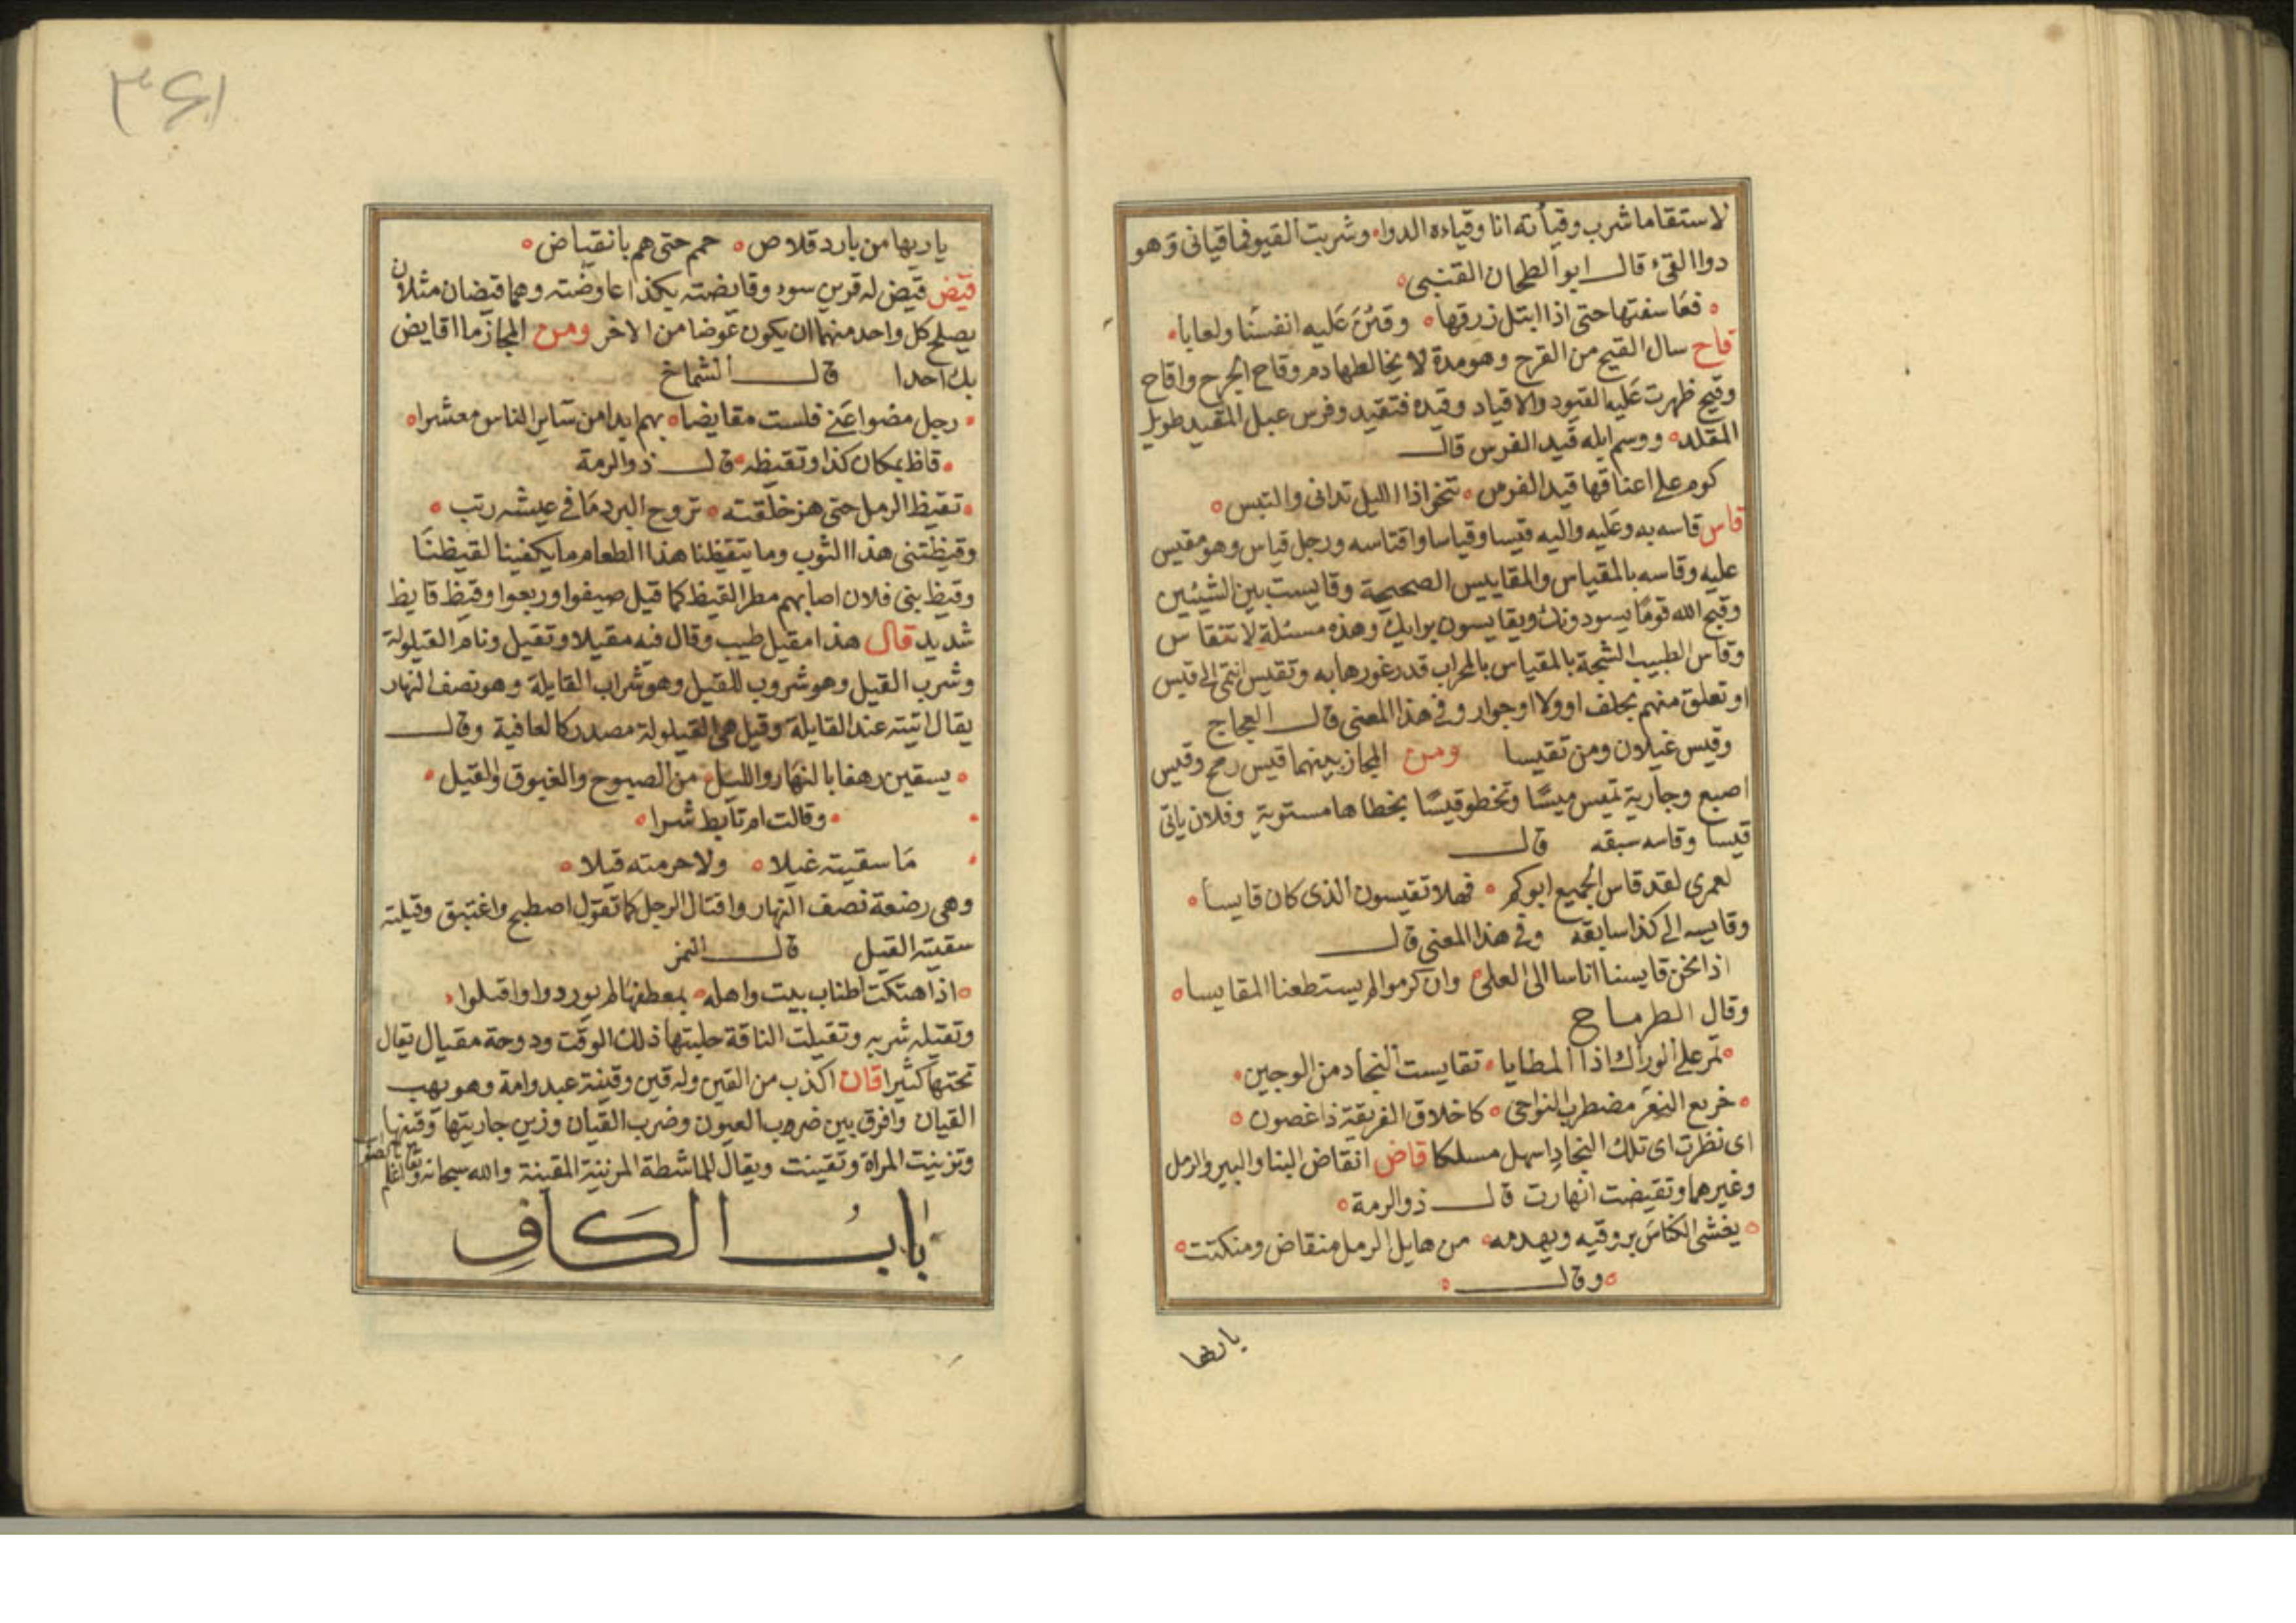 لاستقاما شرب وقيأته انا وقياءه الدوا وشربت القيو فما قيانى وهو
دوا القئ قال ابو الطحان القنبى
فعاسفتها حتى اذا ابتل زرقها وقئن عليه انفسنا ولعابا
قاح سال القيح من القرح وهو مدة لا يخالطها دم وقاح الجرح واقاح
وقيح ظهرت عليه القيود والاقياد وقيده فتقيد وفرس عبل المقيد طويل
المقلد ووسم ابله قيد الفرس قال
كوم على اعناقها قيد الفرس تنخوا اذا الليل تدانى والتبس
قاس قاسه به وعليه واليه قيسا وقياسا واقتاسه ورجل قياس وهو مقيس
عليه وقاسه بالمقياس والمقاييس الصحيحة وقايست بين الشيئين
وقبح الله قوما يسودونك ويقايسون برايك وهذه مسئلة لا تنقاس
وقاس الطبيب الشجة بالمقياس بالمحراب قدر غورها به وتقيس انتمى الى قيس
او تعلق منهم بحلف او ولا او جوار وفى هذا المعنى قال العجاج
وقيس غيلان ومن تقيسا ومن المجاز بينهما قيس رمح وقيس
اصبع وجارية تميس ميسا وتخطو قيسا بخطاها مستوية وفلان ياتى
قيسا وقاسه سبقه قال
لعمرى لقد قاس الجميع ابوكم فهلا تقيسون الذى كان قايسا
وقايسه الى كذا سابقه وفى هذا المعنى قال
اذا نحن قايسنا اناسا الى العلى وان كرموا لم يستطعنا المقايسا
وقال الطرماح
تمر على الوراك اذا المطايا تقايست النجاد من الوجين
خريع النعو مضطرب النواحى كاخلاق الغريفة ذا غصون
اى نظرت اى تلك النجاد اسهل مسلكا قاض انقاض البنا والبير والرمل
وغيرهما وتقيضت انهارت قال ذو الرمة
يغشى الكناس بروقيه ويهدمه من هايل الرمل منقاض ومنكتت
وقال
يا ربها
٣٤١
يا ربها من بارد قلاص جم حتى هم بانقياض
قيض قيض له قرين سوء وقايضته بكذا عاوضته وهما قيضان مثلان
يصلح كل واحد منهما ان يكون عوضا من الاخر ومن المجاز ما اقايض
بك احدا قال الشماخ
رجل مضوا عنى فلست مقايضا بهم ابدا من ساير الناس معشرا
قاظ بمكان كذا وتقيظه قال ذو الرمة
تقيظ الرمل حتى هز خلقته تروح البرد ما فى عيشه رتب
وقيظتنى هذا الثوب وما يتقيظنا هذا الطعام ما يكفينا لقيظنا
وقيظ بنى فلان اصابهم مطر القيظ كما قيل صيفوا وربعوا وقيظ قايظ
شديد قال هذا مقيل طيب وقال فيه مقيلا وتقيل ونام القيلولة
وشرب القيل وهو شروب للقيل وهو شراب القايلة وهو نصف النهار
يقال اتيته عند القايلة وقيل هى القيلولة مصدر كالعافية وقال
يسقين رهفا بالنهار والليل من الصبوح والغبوق والقيل
وقالت ام تابط شرا
ما سقيته غيلا ولا حرمته قيلا
وهى رضعة نصف النهار واقتال الرجل كما تقول اصطبح واغتبق وقيلته
سقيته القيل قال النمر
اذا هتكت اطناب بيت واهله بمعطفها لم يوردوا واقبلوا
وتقيله شربه وتقيلت الناقة حلبتها ذلك الوقت ودوحة مقيال يقال
تحتها كثيرا قان اكذب من القين وله قين وقينة عبد وامة وهو يهب
القيان وافرق بين ضروب العيون وضرب القيان وزين جاريتها وقينها
وتزينت المراة وتقينت ويقال للماشطة المزينة المقينة والله سبحانه وتعالى اعلم
باب الكاف